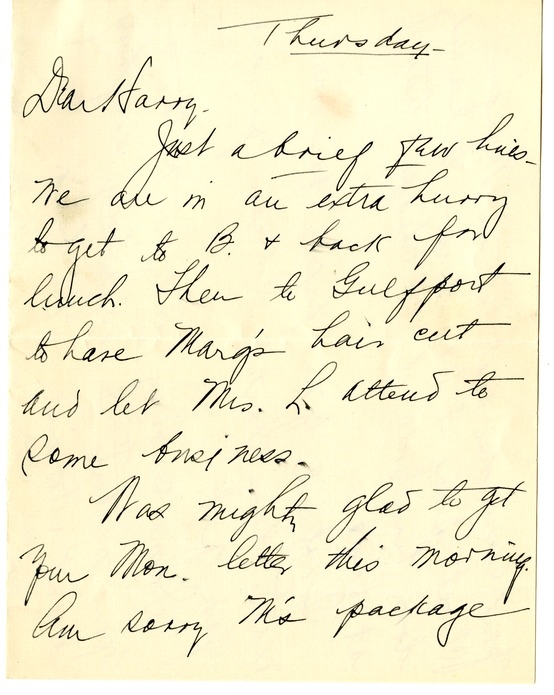 Thursday-
Dear Harry.
Just a brief few lines-
We are in an extra hurry
to get to B. & back for
lunch. Then to Gulfport
to have Marg's hair cut
and let Mrs. L. attend to
some business.
Was mighty glad to get
your Mon. letter this morning.
Am sorry M's package